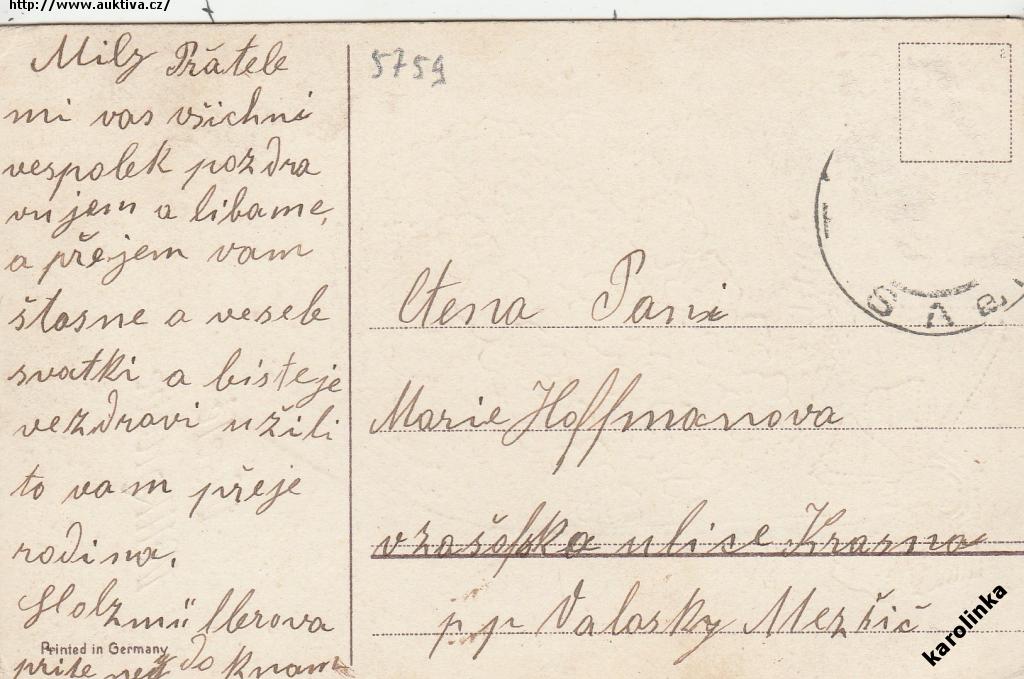 http://www.auktiva.cz/
Milz Přátele
mi vas všichni
vespolek pozdra
vujem a libame,
a přejem vam
štasne a vesele
svatki a bisteje
vezdravi užili
to vam přeje
rodina.
Holzmüllerova
Printed in Germany
do knam
5759
Ctena Pani
Marie Hoffmanova
ulice Krasna
pp Valasky Mezřič
karolinka